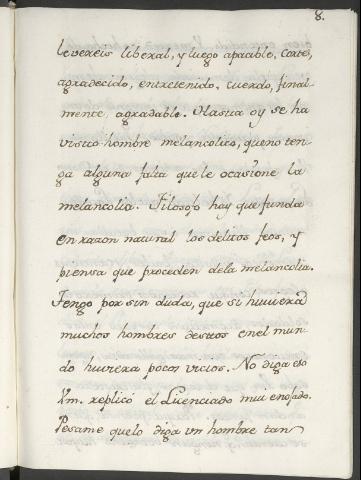 8.
levereis liberal, y luego apacible, cortes,
agradecido, entretenido, cuerdo, final-
mente, agradable. Hasta oy se ha
visto hombre melancolico, que no ten-
ga alguna falta que le ocasione la
melancolia. Filosofo hay que funda
en razon natural los delitos feos, y
piensa que proceden dela melancolia.
Tengo por sin duda, que si huviera
muchos hombres destos enel mun-
do huviera pocos vicios. No diga eso
Vm. replicó el Licenciado mui enojado.
Pesame quelo diga un hombre tan